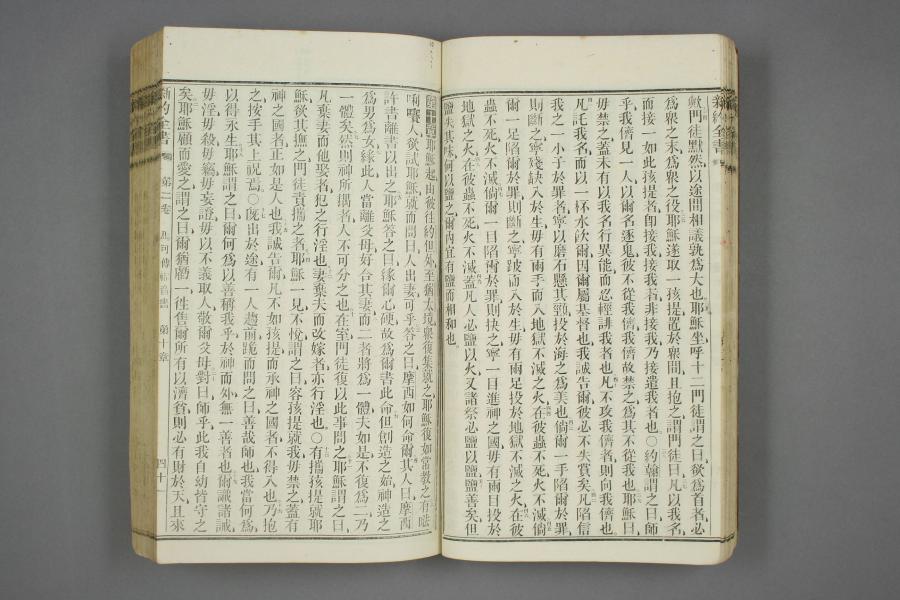 新約全書
歟門徒默然以途間相議孰爲大也耶穌坐呼十二門徒謂之曰欲爲首者必
爲衆之末爲衆之役耶穌遂取一孩提置於衆間且抱之謂門徒曰凡以我名
而接一如此孩提者卽接我接我者非接我乃接遣我者也○約翰謂之曰師
乎我儕見一人以爾名逐鬼彼不從我儕我儕故禁之爲其不從我也耶穌曰
毋禁之蓋未有以我名行異能而忍輕誹我者也凡不攻我儕者則向我儕也
凡託我名而以一杯水飲爾因爾屬基督也我誠告爾彼必不失賞矣凡陷信
我之一小子於罪者寧以磨石懸其頸投於海之爲美也倘爾一手陷爾於罪
則斷之寧殘缺入於生毋有兩手而入地獄不滅之火在彼蟲不死火不滅倘
爾一足陷爾於罪則斷之寧跛而入於生毋有兩足投於地獄不滅之火在彼
蟲不死火不滅倘爾一目陷爾於罪則抉之寧一目進神之國毋有兩目投於
地獄之火在彼蟲不死火不滅蓋凡人必鹽以火又諸祭必鹽以鹽鹽善矣但
鹽失其味何以鹽之爾內宜有鹽而相和也
耶穌起由彼往約但外至猶太境衆復集就之耶穌復如常教之有𠵽
唎㘔人欲試耶穌就而問曰人出妻可乎答之曰摩西如何命爾其人曰摩西
許書離書以出之耶穌答之曰緣爾心硬故爲爾書此命但創造之始神造之
爲男爲女緣此人當離父母好合其妻而二者將爲一體夫如是不復爲二乃
一體矣然則神所耦者人不可分之也在室門徒復以此事問之耶穌謂之曰
凡棄妻而他娶者犯之行淫也妻棄夫而改嫁者亦行淫也○有攜孩提就耶
穌欲其撫之門徒責攜之者耶穌一見不悅謂之曰容孩提就我毋禁之蓋有
神之國者正如是人也我誠告爾凡不如孩提而承神之國者不得入也乃抱
之按手其上祝焉○旣出於途有一人趨前跪而問之曰善哉師也我當何爲
以得永生耶穌謂之曰爾何爲以善稱我乎於神而外無一善者也爾識諸誡
毋淫毋殺毋竊毋妄證毋以不義取人敬爾父母對曰師乎此我自幼皆守之
矣耶穌顧而愛之謂之曰爾猶虧一往售爾所有以濟貧則必有財於天且來
新約全書 第二卷 馬可傳福音書 第十章 四十